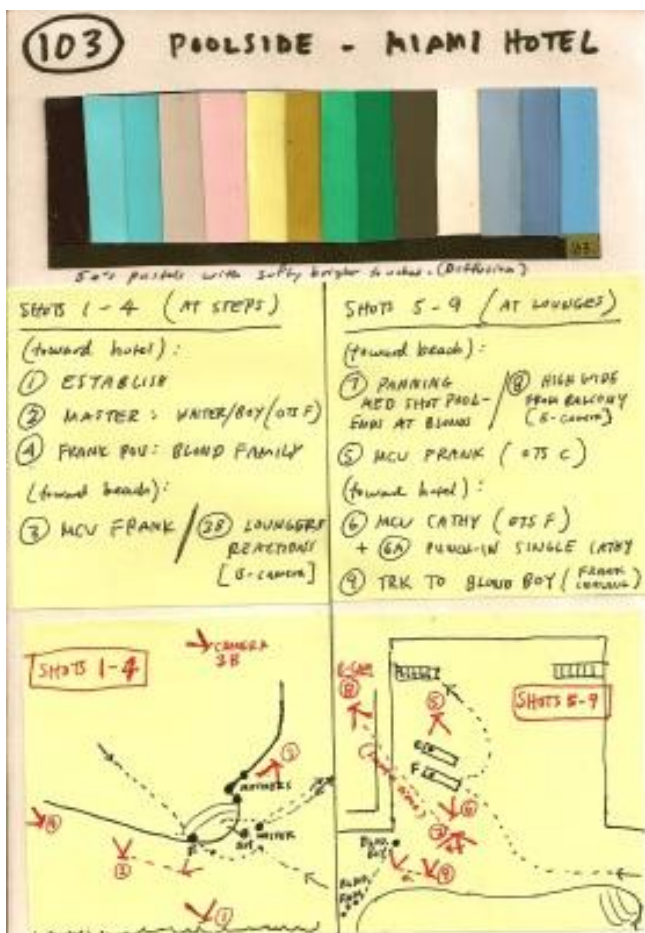 103 POOLSIDE - MIAMI HOTEL
103
50's pastels with softly brighter touches. (Diffusion)
SHOTS 1-4 (AT STEPS)
(toward hotel):
1 ESTABLISH
2 MASTER: WAITER/BOY (OTS F)
4 FRANK POV: BLOND FAMILY
(toward beach):
3 MCU FRANK / 3B LOUNGERS
REACTIONS
[B-camera]
SHOTS 5-9 (AT LOUNGES)
(toward beach):
7 PANNING
MED SHOT POOL-
ENDS AT BLOND
/ 8 HIGH WIDE
FROM BALCONY
[B-camera]
5 MCU FRANK (OTS C)
(toward hotel):
6 MCU CATHY (OTS F)
+ 6A PUNCH-IN SINGLE CATHY
9 TRK TO BLOND BOY (FRANK
SHOTS 1-4
CAMERA
3B
3
MOTHERS
WAITER
BOY
F
4
2
1
B-CAM
8
SHOTS 5-9
5
C
F
6
7
BLOND
BOY
9
BLOND